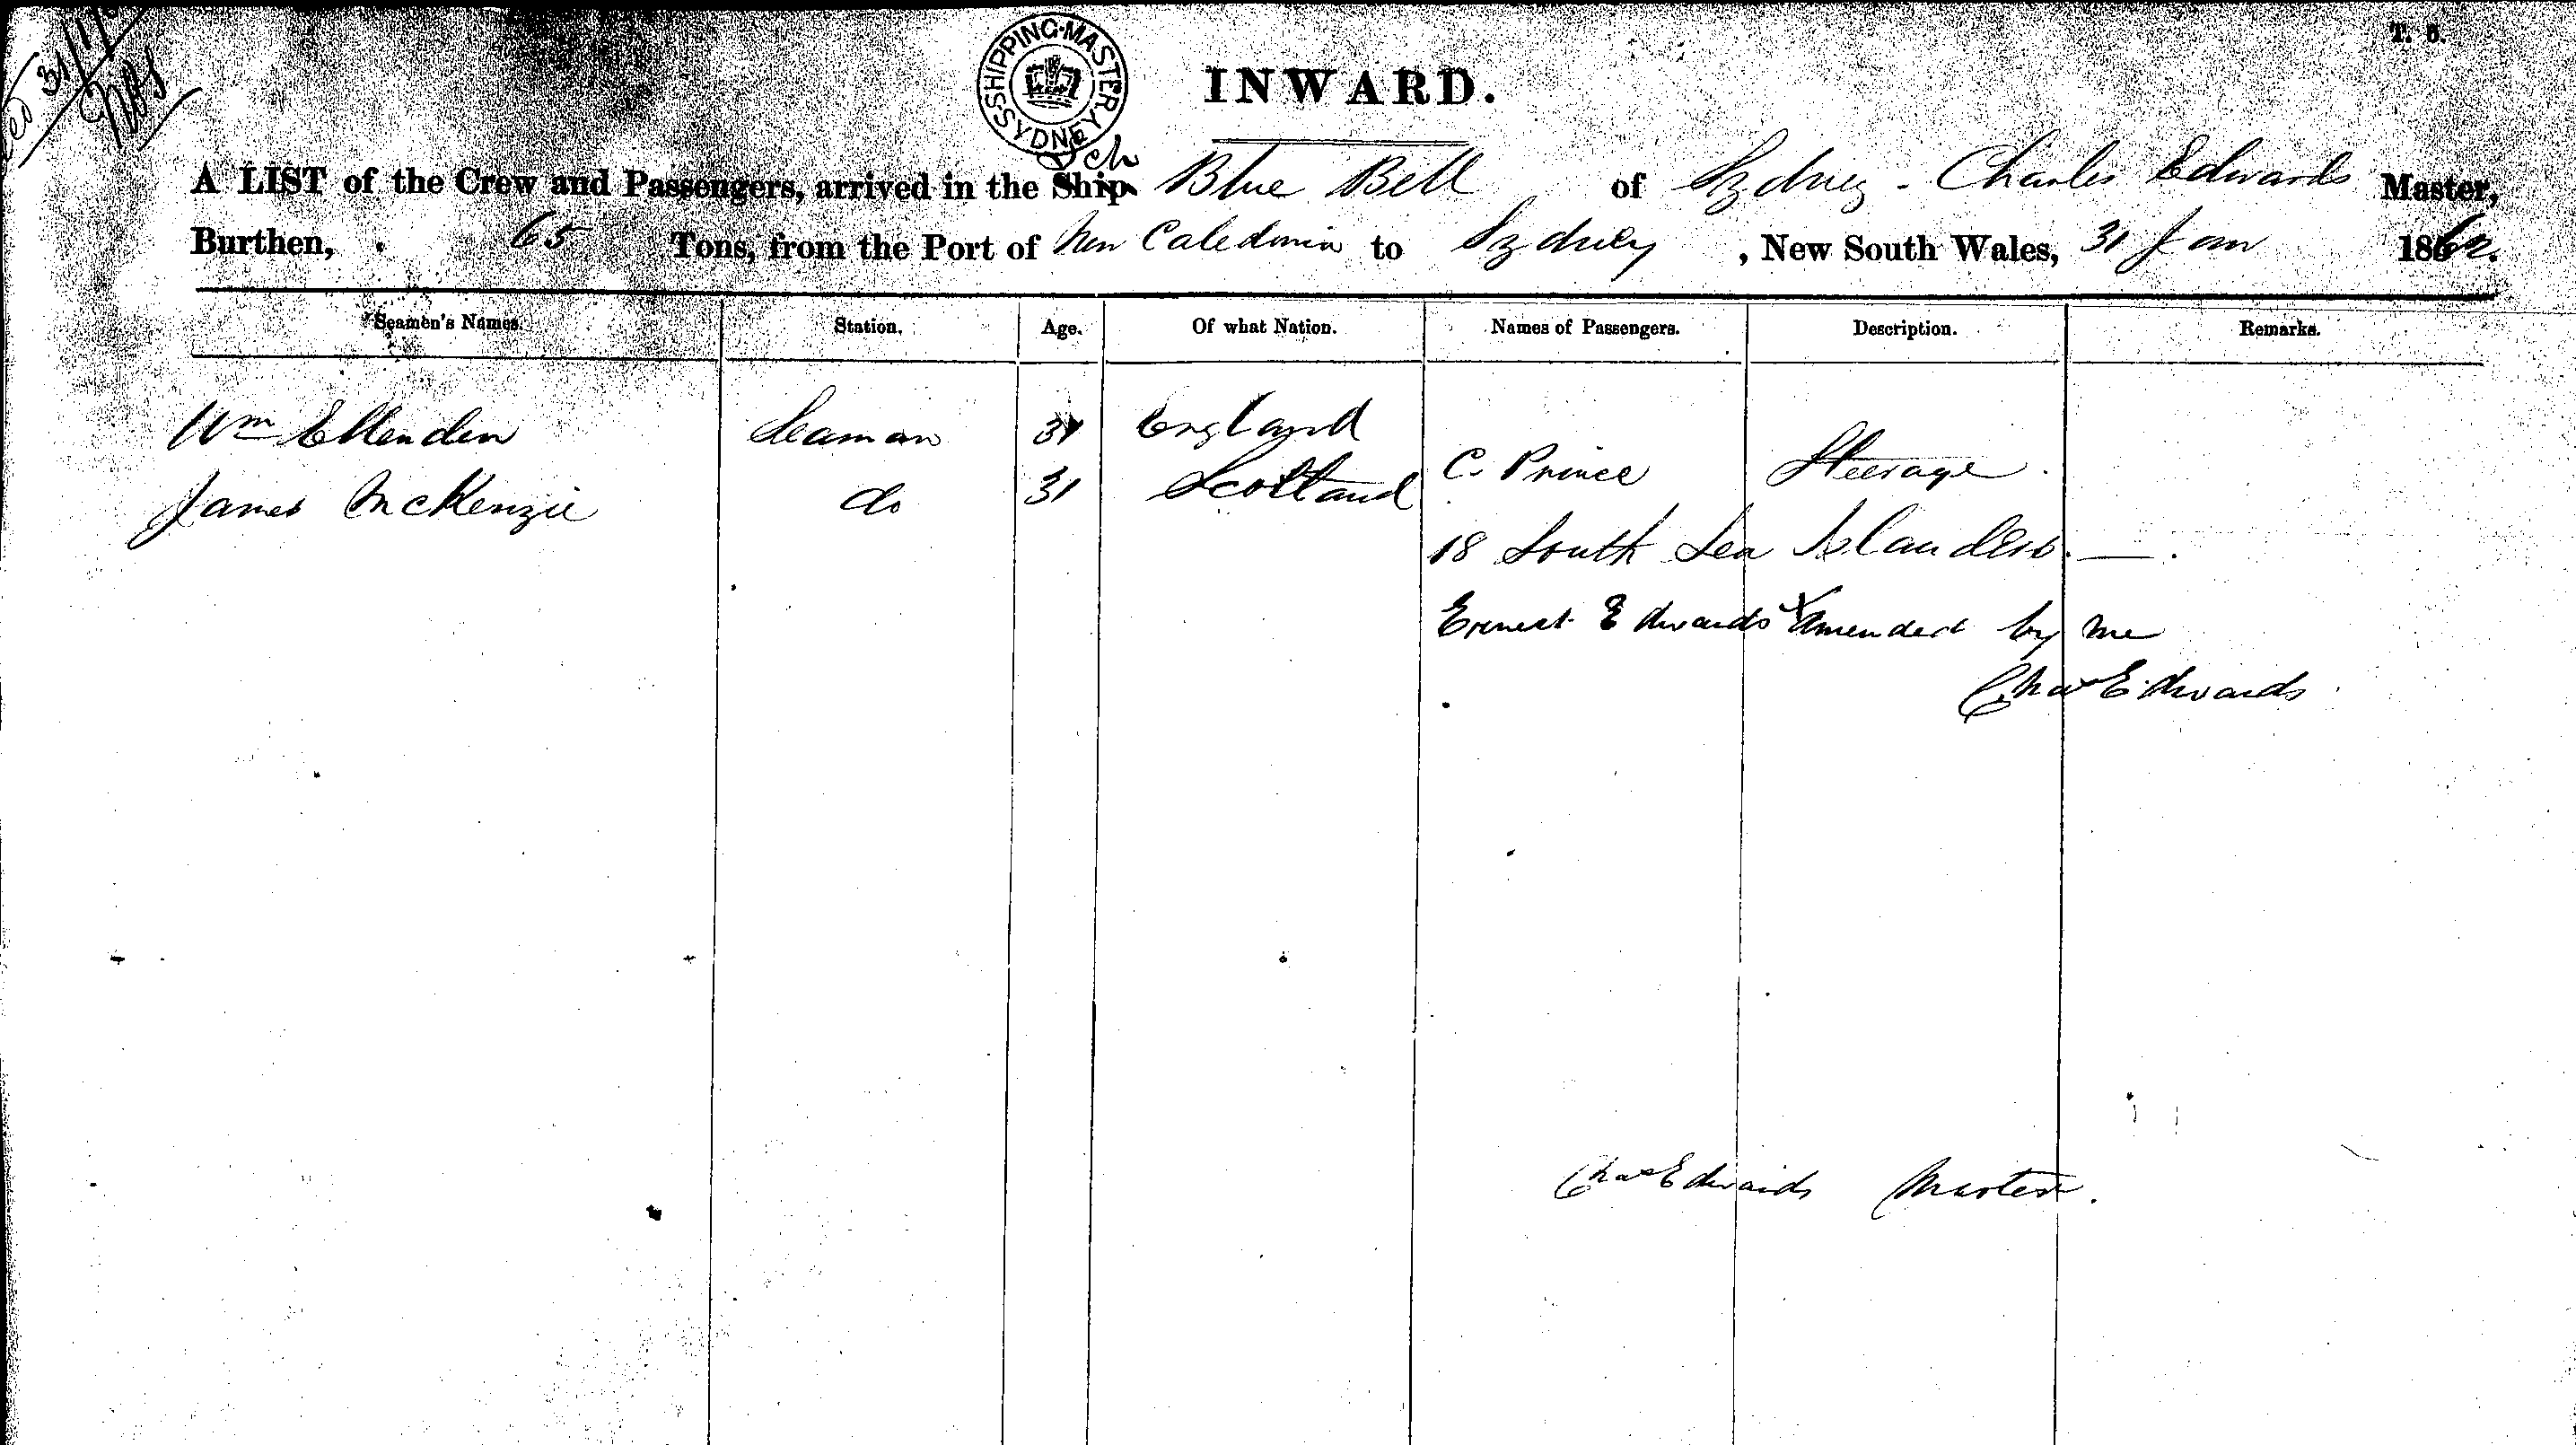 31/1/
T. 5.
SHIPPING-MASTER SYDNEY
INWARD.
Sch
A LIST of the Crew and Passengers, arrived in the Ship Blue Bell of Sydney - Charles Edwards Master,
Burthen, 65 Tons, from the Port of New Caledonia to Sydney, New South Wales, 31 Jan 1862.
Seamen's Names. Station. Age. Of what Nation. Names of Passengers. Description. Remarks.
Wm Ellenden Seaman England
C. Prince Steerage
James McKenzie do 31 Scotland
18 South Sea Islanders. —.
Ernest Edwards x Amended by me
Chas Edwards
Chas Edwards Master.